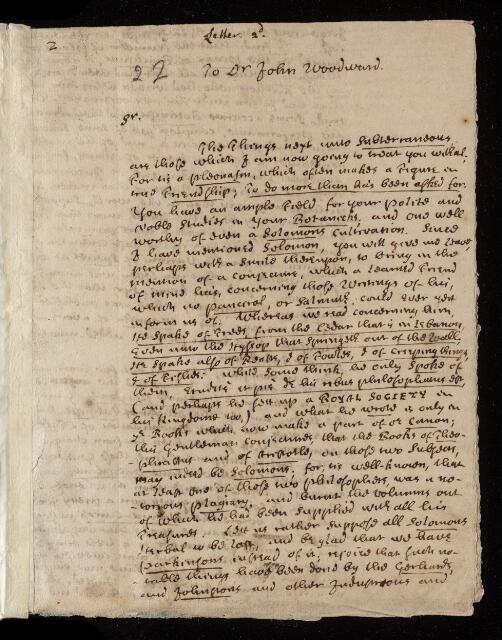 2.
Letter. 2d.
22 To Dr John Woodward.
Sr.
The Things next unto Subterraneous,
are those which I am now going to treat you withal.
For tis a pleonasm, which often makes a Figure in
true Friendship; To do more than has been asked for.
You have an ample Field for your Polite and
Noble Studies in your Botanicks, and one well
worthy of even a Solomons Cultivation. Since
I have mentioned Solomon, you will give me leave,
perhaps with a smile thereupon, to bring in the
mention of a conjecture, which a learned Friend
of mine has, concerning those Writings of his,
which no Pancirol, or Salmuth, could ever yett
inform us of. Whereas we read concerning him,
He spake of Trees, from the Cedar that is in Lebanon,
Even unto the Hyssop that springeth out of the Wall;
He spake also of Beasts, & of Fowles, & of creeping things,
& of Fishes: while some think, he only spoke of
them, in his philosophicians
(and perhaps he sett up a ROYAL SOCIETY in
his Kingdome too,) and what he wrote is only in
ye Books which now make a part of or Canon;
this Gentleman conjectures that the Books of Theo-
phrastus and of Aristotle, on those two Subjects,
may indeed be Solomons; for, tis well-known, that
at least one of those two philosophers, was a no-
torious plagiary, and burnt the volumns out
of which he had been supplied with all his
Treasures. Lett us rather suppose all Solomons
Herbal to be lost, and be glad that we have
Parkinsons instead of it; rejoice that such no-
table things have been done by the Gerhards,
and Johnsons and other Industrious and